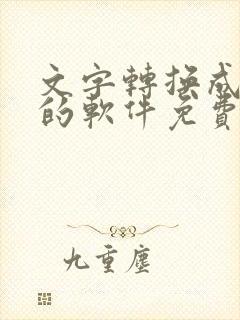 文字轉換成
的軟件免費
九重塵